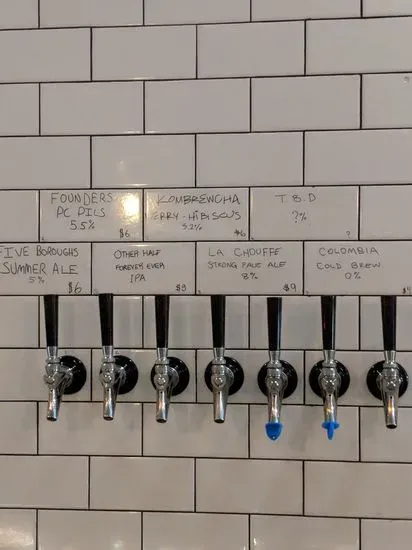 FOUNDERS
PC PILS
5.5% $6
KOMBREWCHA
BERRY-HIBISCUS
3.2% $6
T.B.D
?%
?
FIVE BOROUGHS
SUMMER ALE
5% $6
OTHER HALF
FOREVER EVER
IPA
$9
LA CHOUFFE
STRONG PALE ALE
8% $9
COLOMBIA
COLD BREW
0%